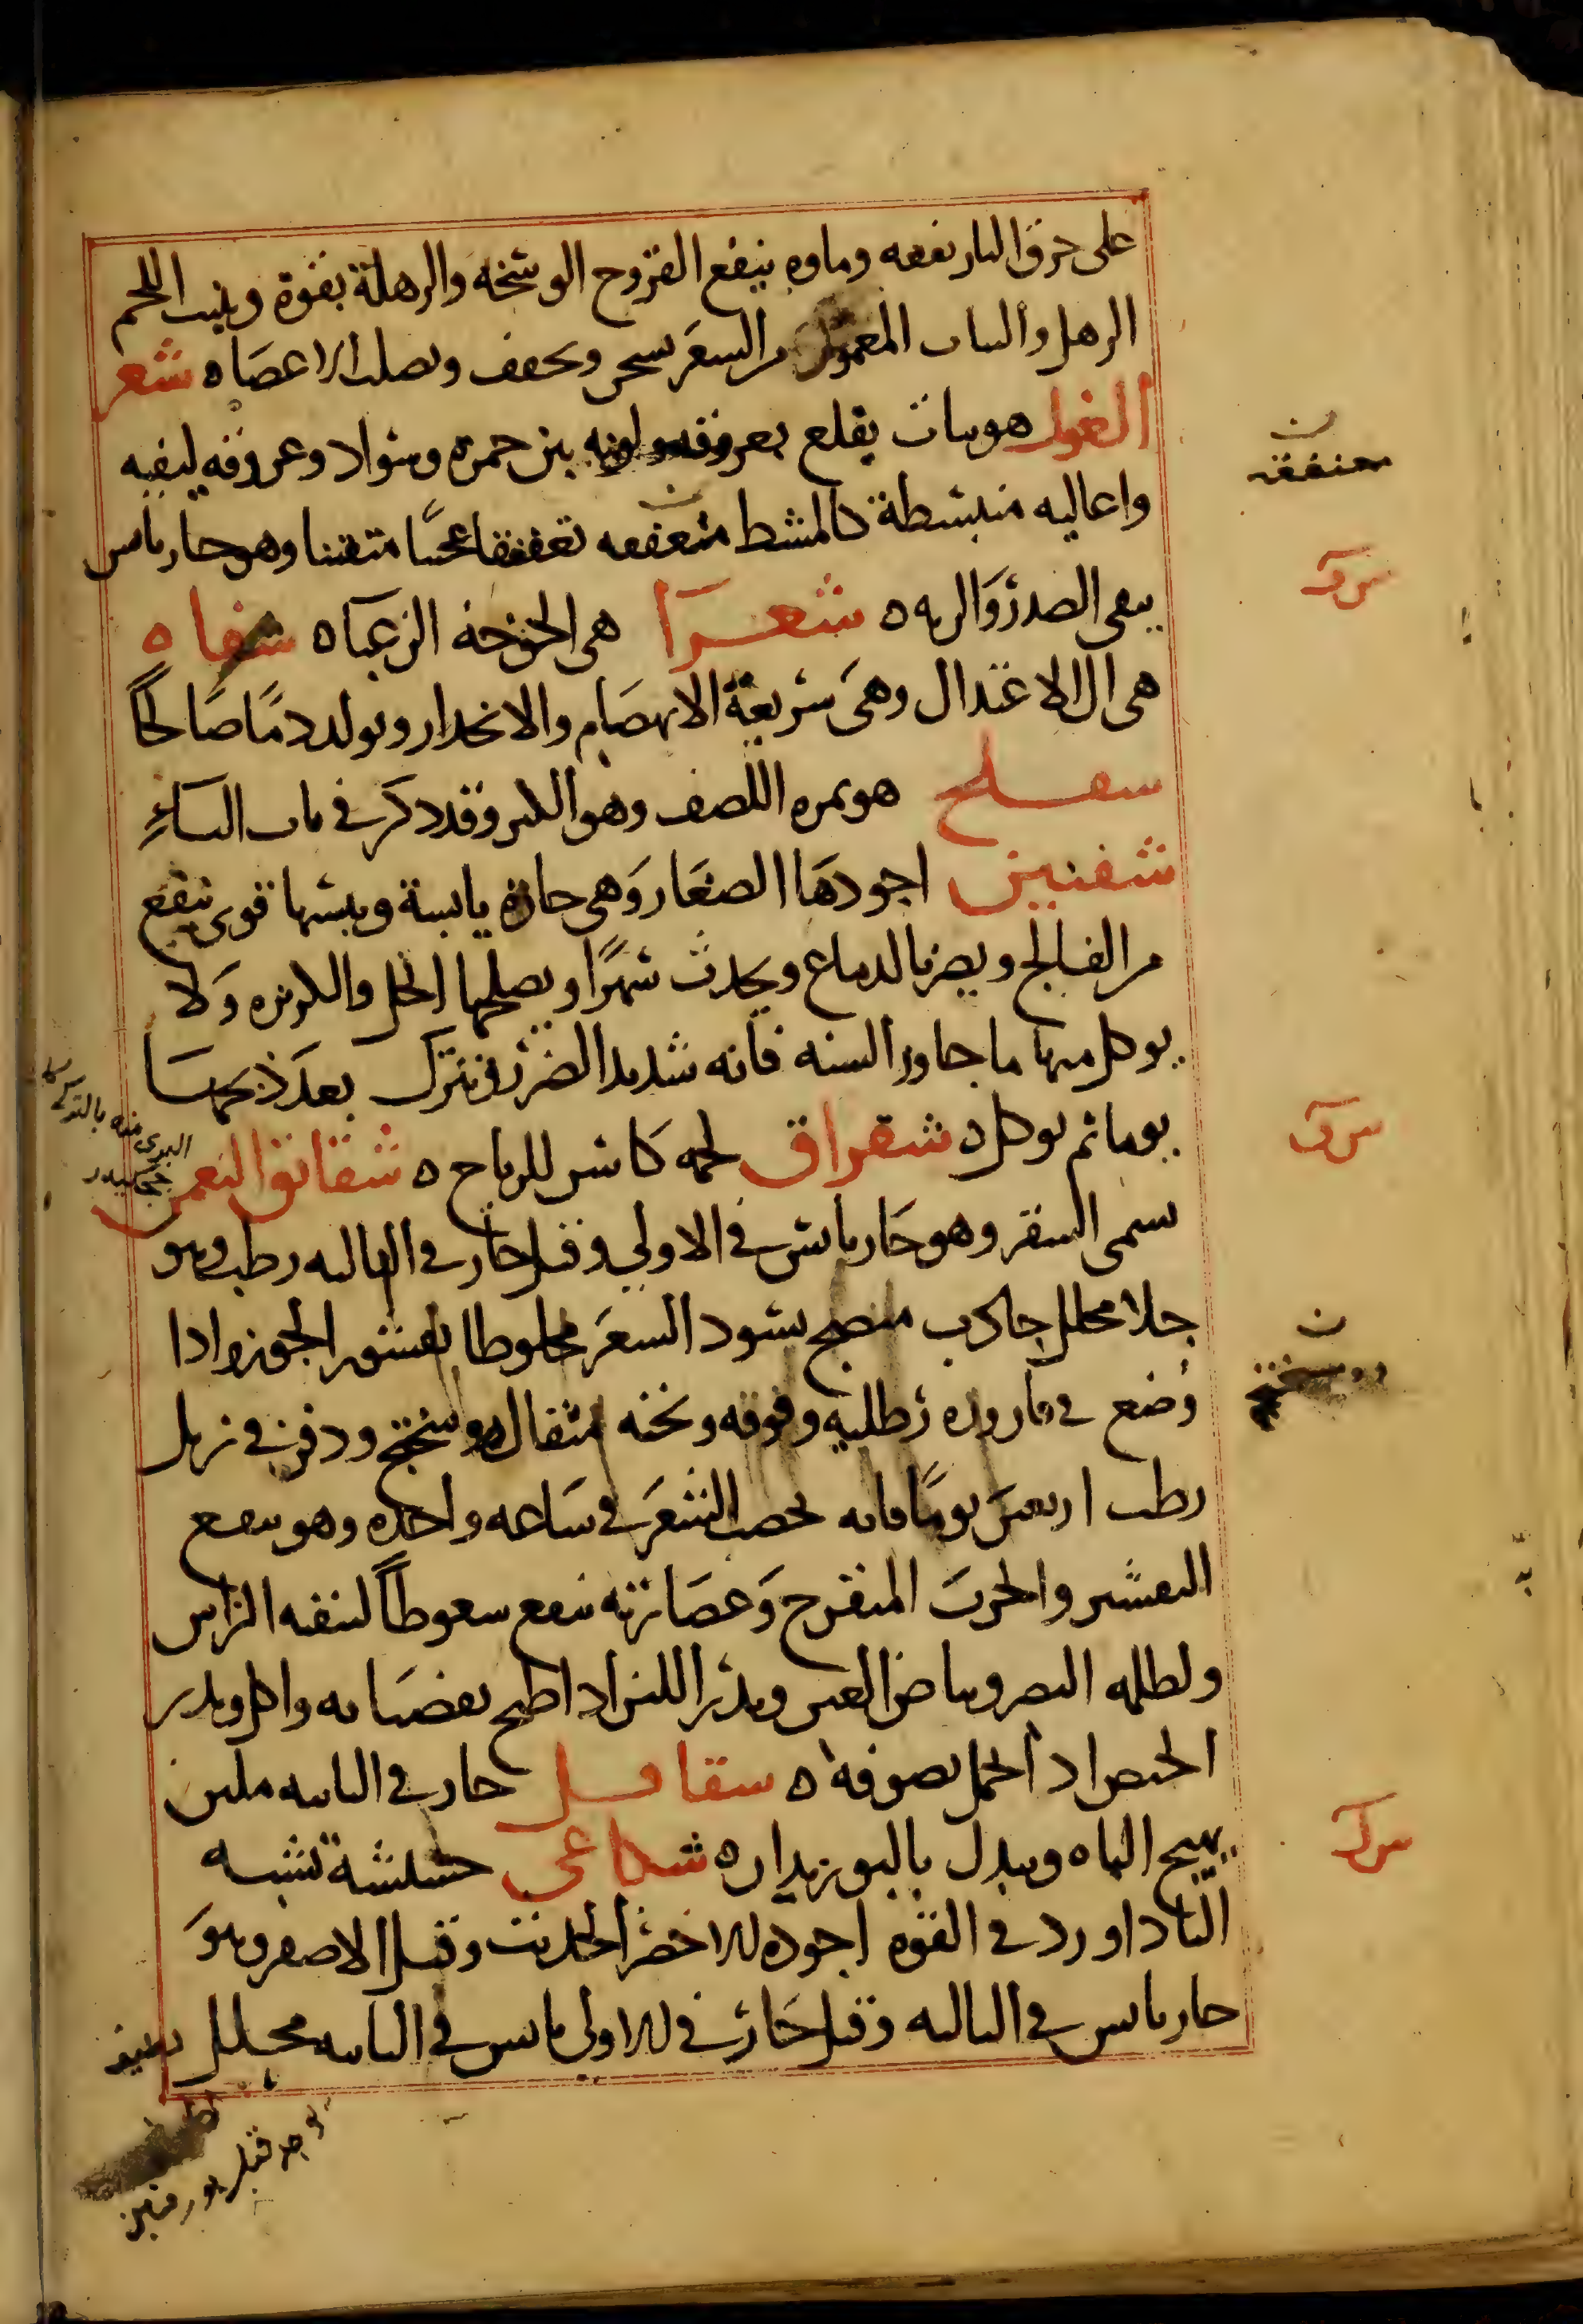 على حرق النار نفعه وماوه ينفع القروح الوسخه والرهلة بقوة وينبت اللحم
الرهل والثياب المعموله من الشعر تسخن وتجفف وتصلب الاعضا ه شعر
الغول هو نبات يقلع بعروقه ولونه بين حمره وسواد وعروقه ليفيه
واعاليه منبسطة كالمشط متعففه تعففا عجيبا متفننا وهو حار يابس
ينقى الصدر والريه ه شعرا هى الخوخة الزغبا ه شفاه
هى الى الاعتدال وهى سريعة الانهضام والانحدار وتولد دما صالحا
شفلح هو ثمره اللصف وهو الكبر وقد ذكر فى باب الباء
شفنين اجودها الصغار وهى حاره يابسة ويبسها قوى ينفع
من الفالج ويضر بالدماغ ويحدث سهرا ويصلحها الخل والكزبره ولا
يوكل منها ما جاوز السنه فانه شديد الضرر ويترك بعد ذبحها
يوما ثم يوكل ه شقراق لحمه كاسر للرياح ه شقائق النعمن
يسمى الشقر وهو حار يابس فى الاولى وقيل حار فى الثانيه رطب وهو
جلا محلل جاذب منضج يسود الشعر مخلوطا بقشور الجوز واذا
وضع فى قاروره رطليه وفوقه وتحته مثقال روسختج ودفن فى زبل
رطب اربعين يوما فانه يخضب الشعر فى ساعه واحده وهو ينفع
التقشر والجرب المتقرح وعصارته تنفع سعوطا لتنقيه الراس
ولظلمه البصر وبياض العين ويدر اللبن اذا طبخ بقضبانه واكل ويدر
الحيض اذا احتمل بصوفه ه شقاقل حار فى الثانيه ملين
يهيج الباه ويبدل بالبوزيدان ه شكاعى حشيشة تشبه
الباداورد فى القوه اجوده الاخضر الحديث وقيل الاصفر وهو
حار يابس فى الثالثه وقيل حار فى الاولى يابس فى الثانيه محلل
متعففه
ن
سرق
سرق
ن
روسختج
سرق